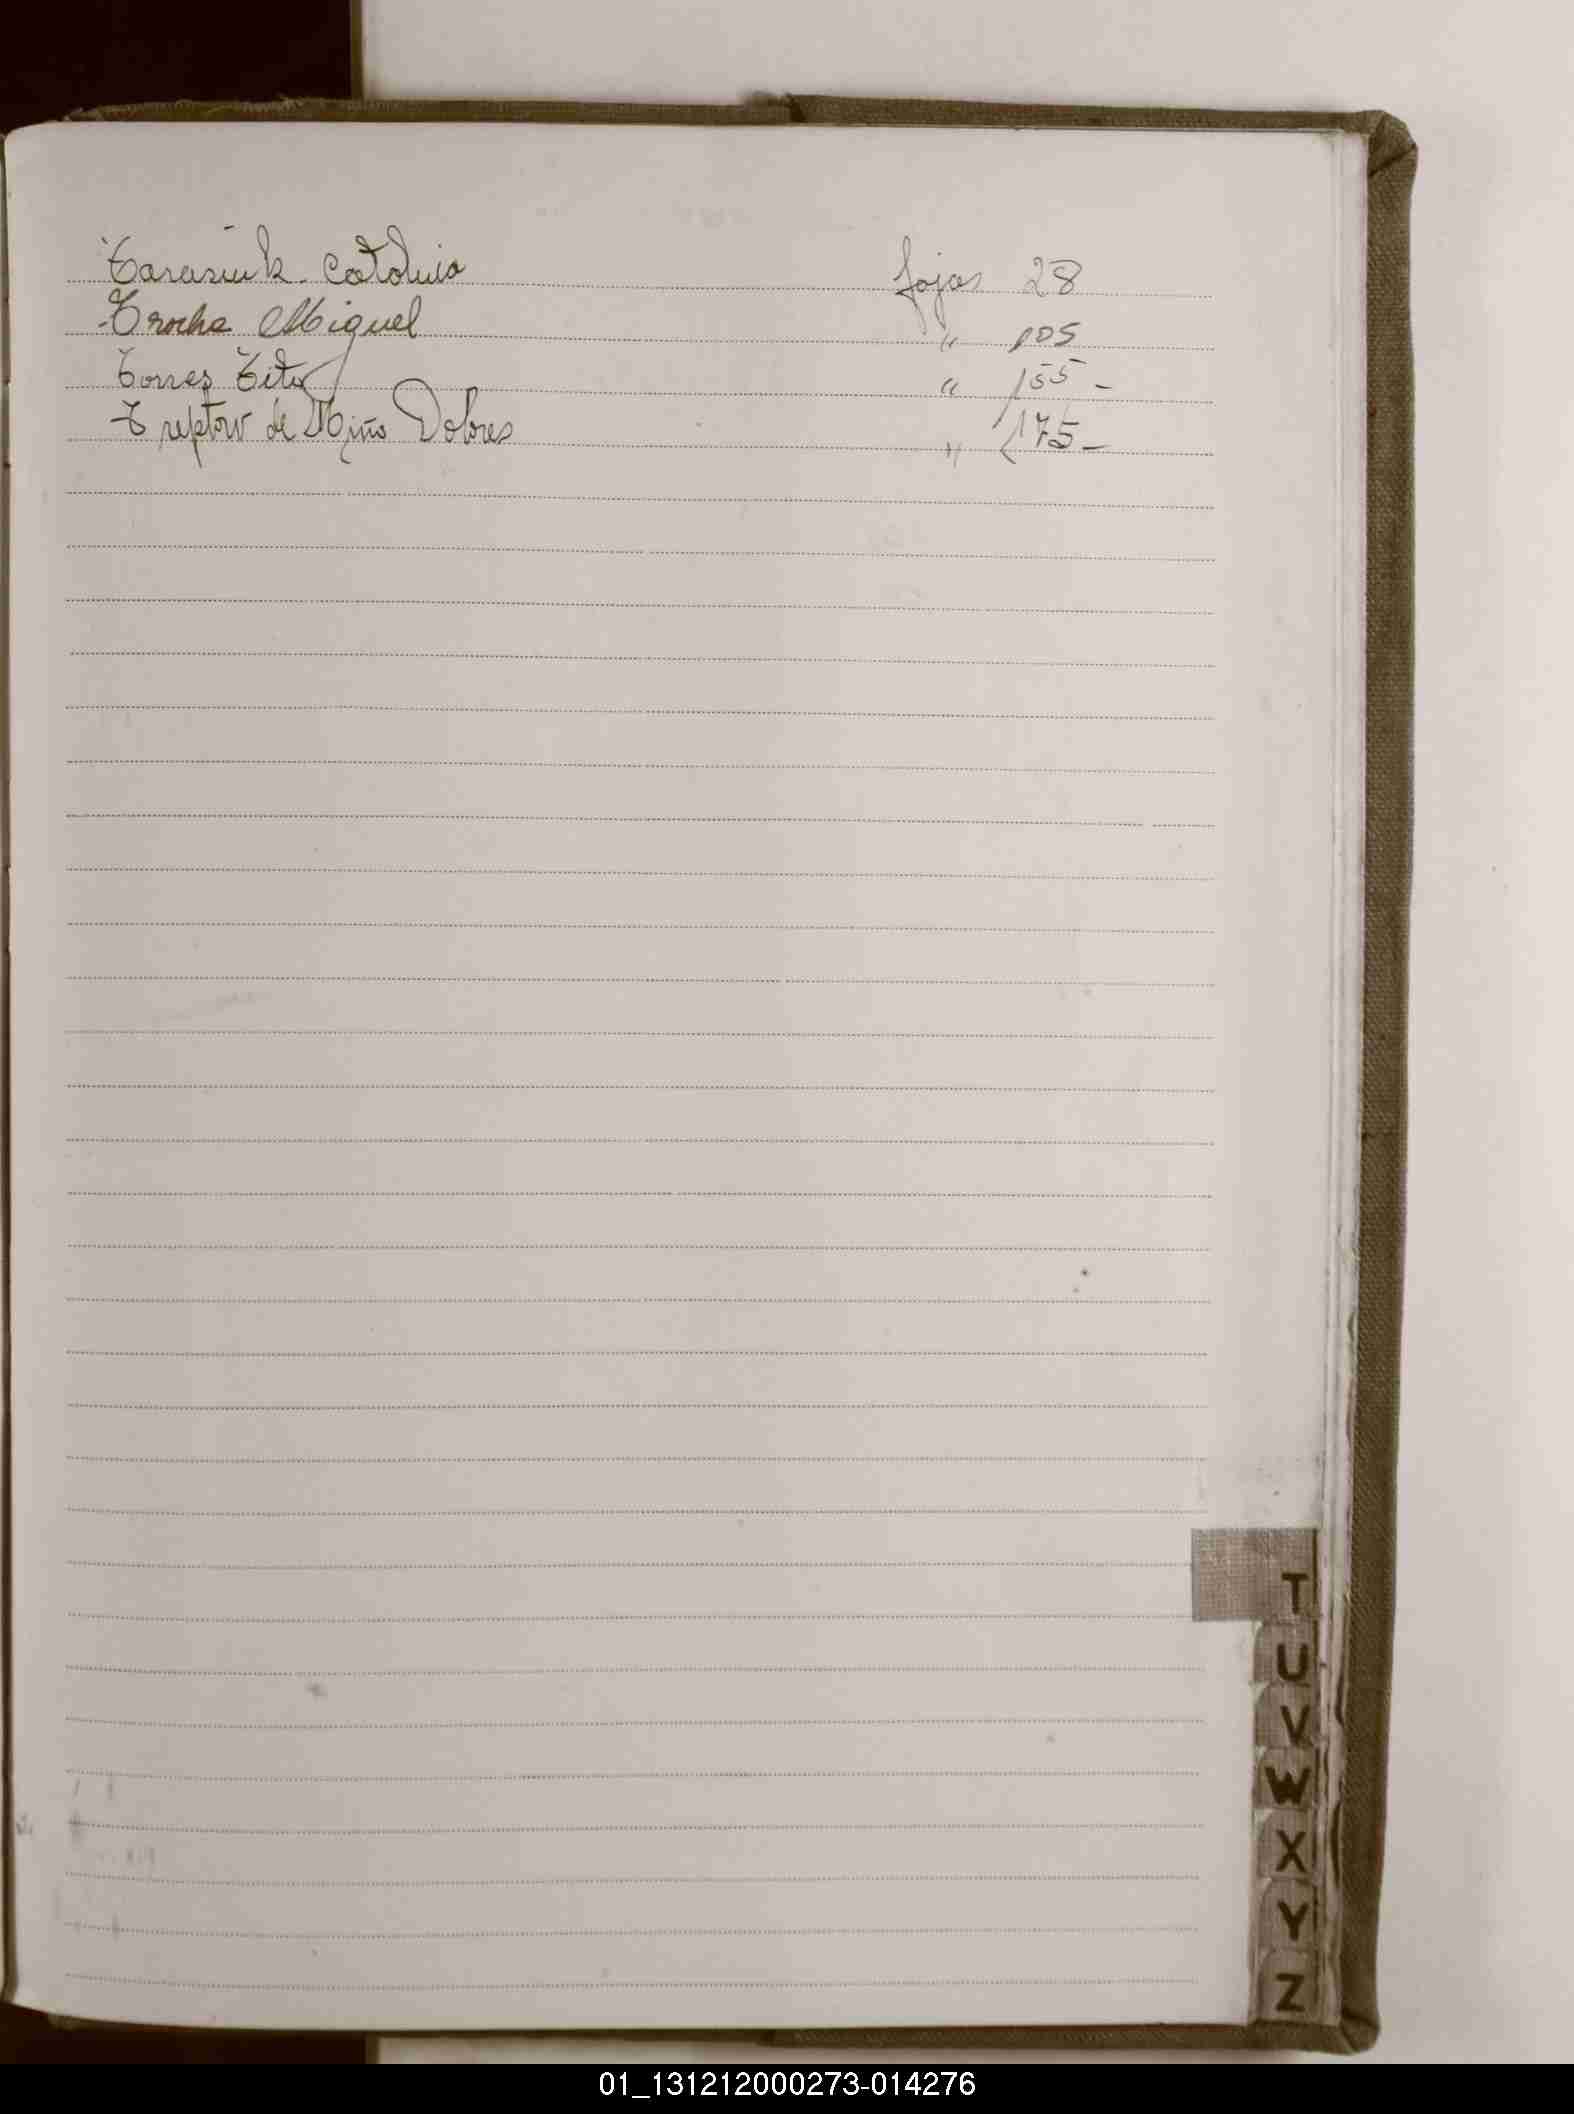 Tarasiuk Catalina fojas 28
Trocha Miguel " 105
Torres Tito " 155-
Treptow de Miño Dolores " 175-
T
U
V
W
X
Y
Z
01_131212000273-014276